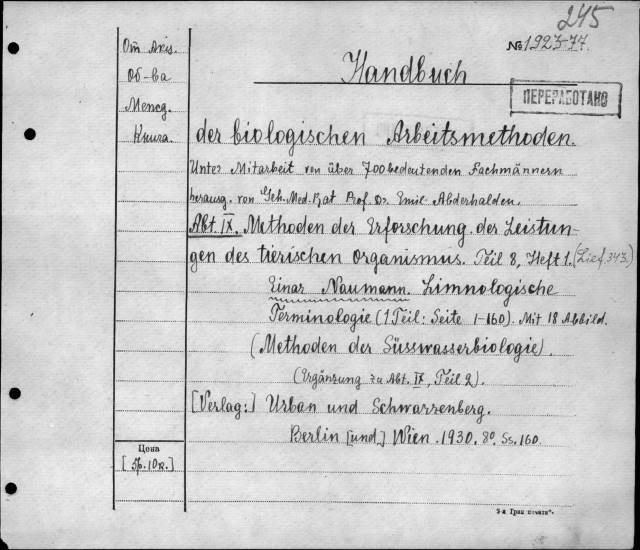 245
№ 1923-77.
От Акц.
Об-ва
Межд.
Книга.
Handbuch
ПЕРЕРАБОТАНО
der biologischen Arbeitsmethoden.
Unter Mitarbeit von über 700 bedeutenden Fachmännern
herausg. von Geh. Med. Rat Prof. Dr. Emil Abderhalden.
Abt. IX. Methoden der Erforschung der Leistun-
gen des tierischen Organismus. Teil 8, Heft 1. (Lief. 343)
Einar Naumann. Limnologische
Terminologie (1 Teil: Seite 1-160). Mit 18 Abbild.
(Methoden der Süsswasserbiologie).
(Ergänzung zu Abt. IX, Teil 2).
[Verlag:] Urban und Schwarzenberg.
Berlin [und] Wien. 1930. 8°. Ss. 160.
Цена
[5р. 10к.]
3-яГрад печати".